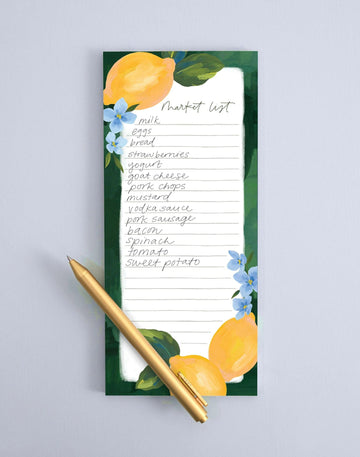 market list
milk
eggs
bread
strawberries
yogurt
goat cheese
pork chops
mustard
vodka sauce
pork sausage
bacon
spinach
tomato
sweet potato